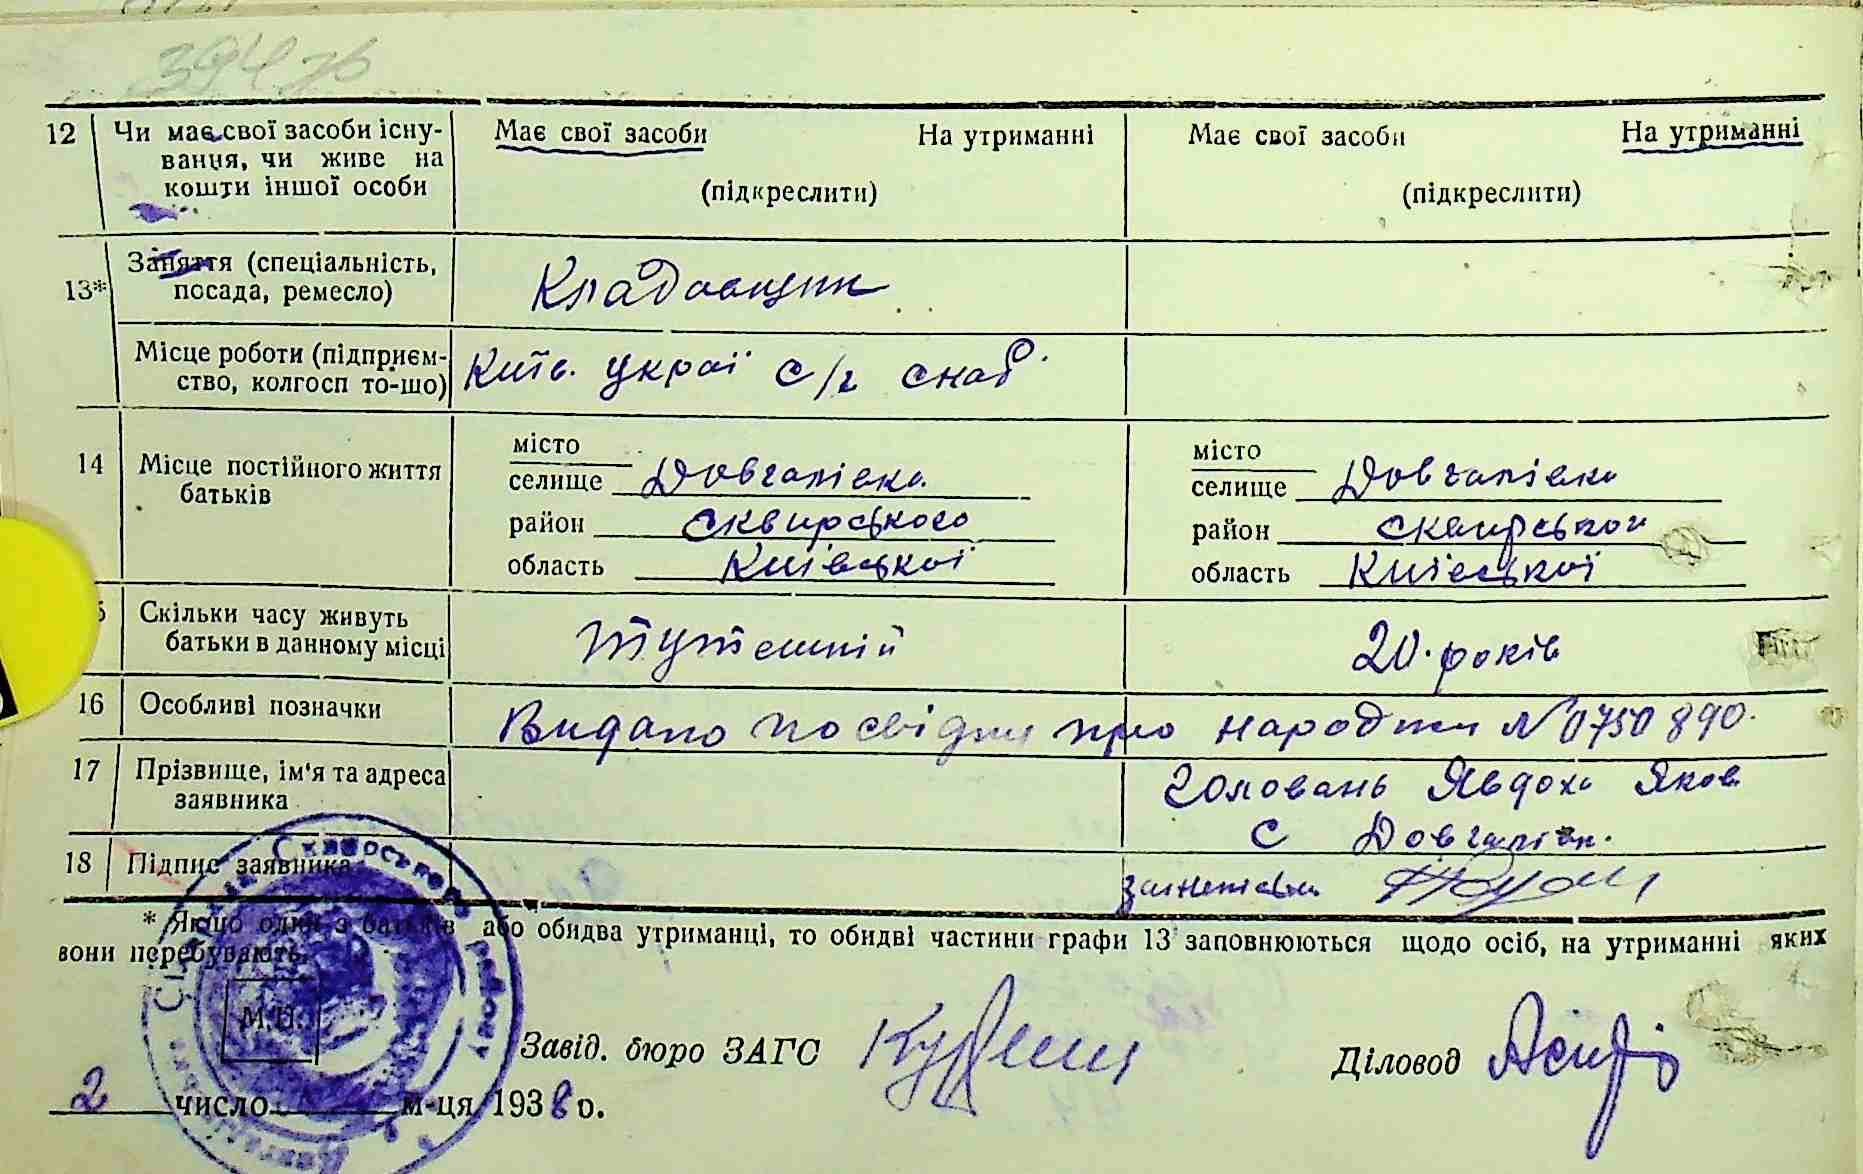 394
12 Чи має свої засоби існу-
вання, чи живе на
кошти іншої особи
Має свої засоби На утриманні
(підкреслити)
Має свої засоби На утриманні
(підкреслити)
13* Заняття (спеціальність,
посада, ремесло)
Кладовщик
Місце роботи (підприєм-
ство, колгосп то-що)
Київ. украї с/г снаб.
14 Місце постійного життя
батьків
місто
селище Довгалівка
район Сквирського
область Київської
місто
селище Довгалівка
район Сквирськой
область Київської
Скільки часу живуть
батьки в данному місці
Тутешній
20. років
16 Особливі позначки
Видано посвідки про народжен N 0750890.
17 Прізвище, ім'я та адреса
заявника
Головань Явдоха Яков
с Довгалівк.
18 Підпис заявника
* Якщо один з батьків або обидва утриманці, то обидві частини графи 13 заповнюються щодо осіб, на утриманні яких
вони перебувають.
М.П.
Сквирського району
Завід. бюро ЗАГС
Діловод
2 число м-ця 1938 о.